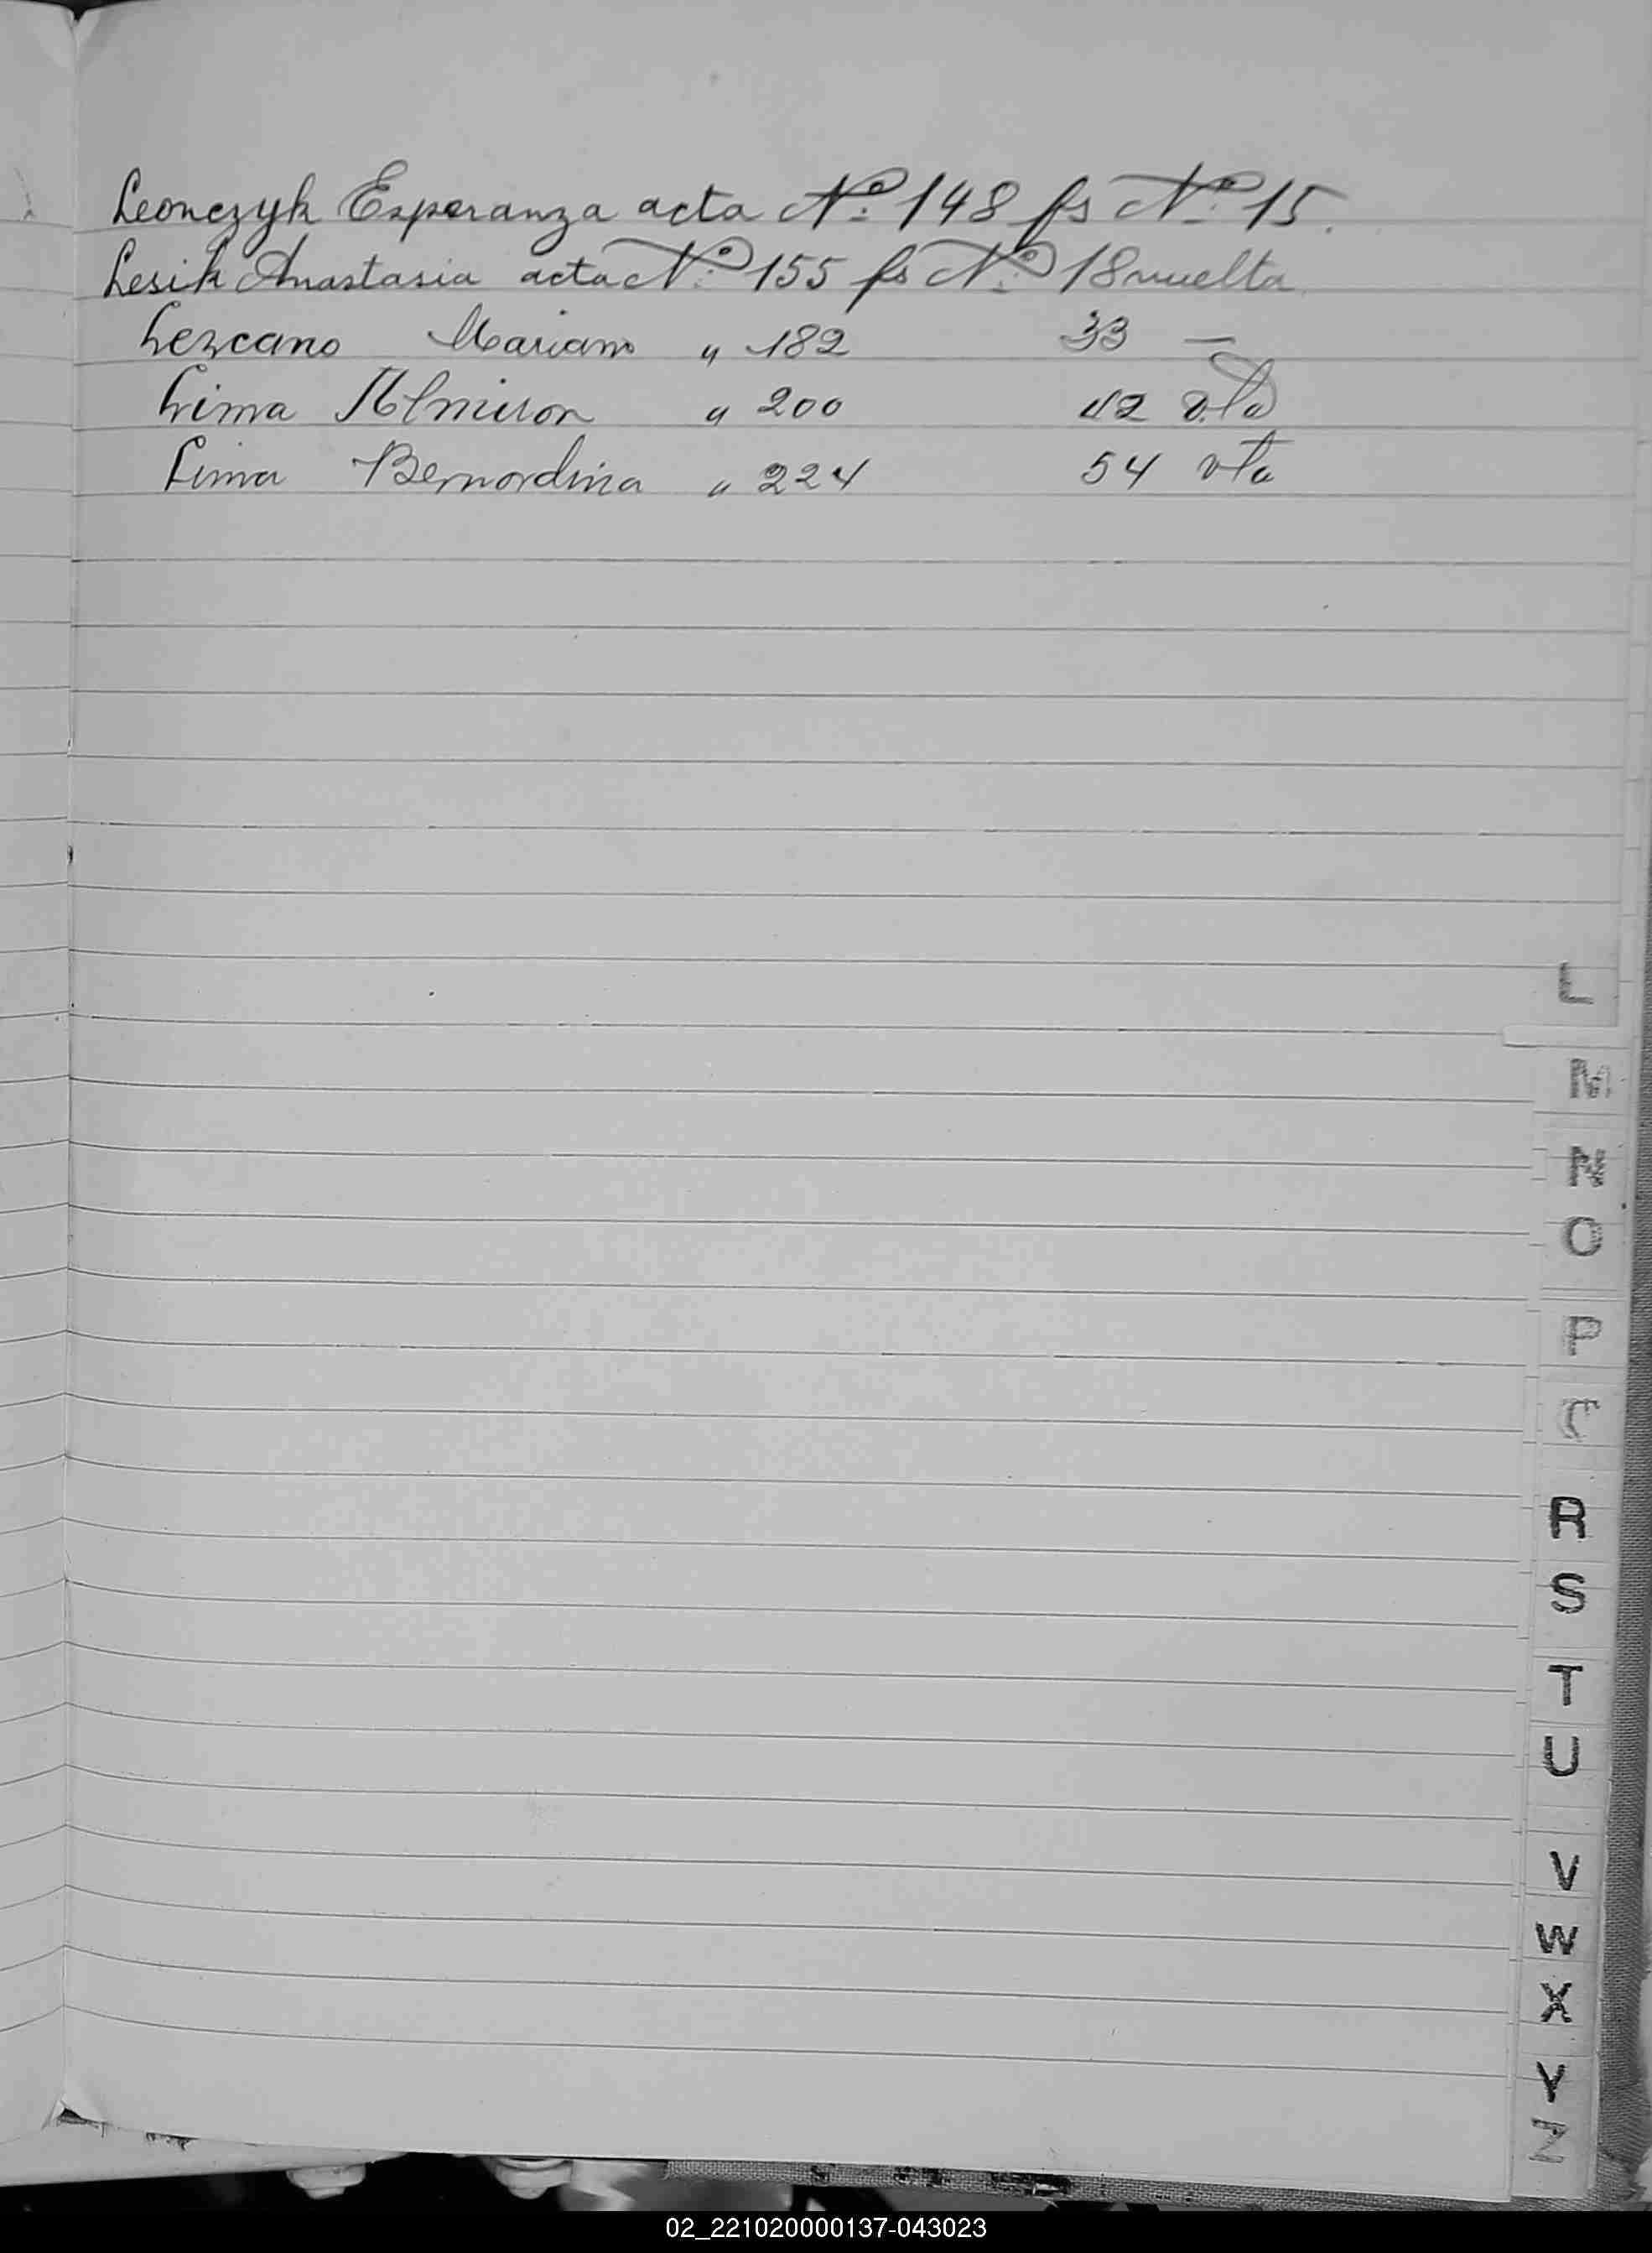 Leonczyk Esperanza acta Nº 148 fs Nº 15.
Lesik Anastasia acta Nº 155 fs Nº 18 vuelta
Lezcano Mariano " 182 33 —
Lima Almiron " 200 42 vta
Lima Bernardina " 224 54 vta
L
M
N
O
P
R
S
T
U
V
W
X
Y
Z
02_221020000137-043023